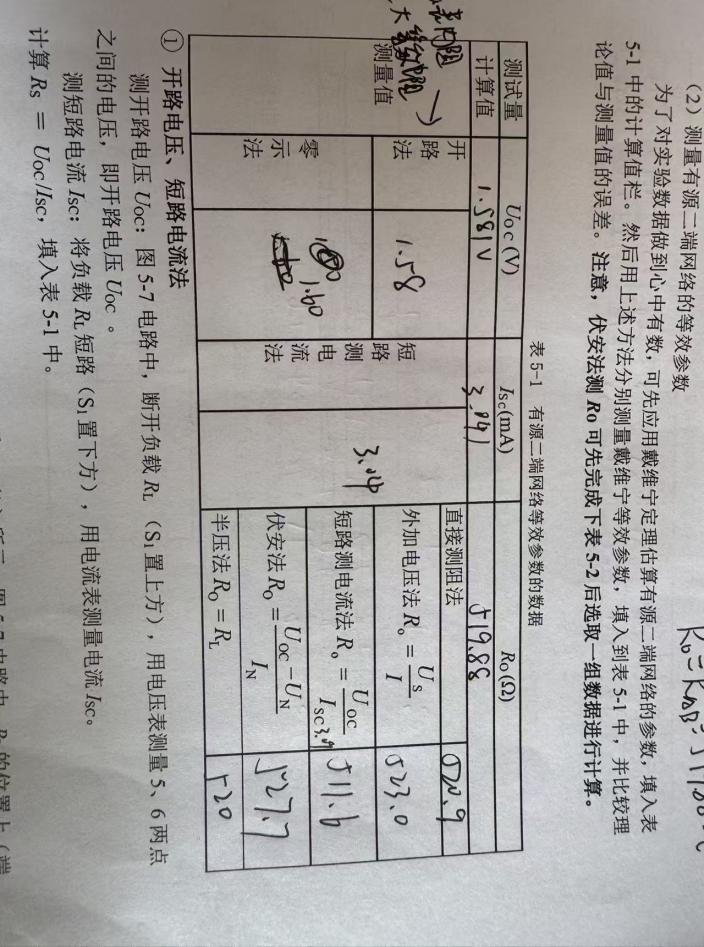 (2) 测量有源二端网络的等效参数
为了对实验数据做到心中有数,可先应用戴维宁定理估算有源二端网络的参数,填入表
5-1 中的计算值栏。然后用上述方法分别测量戴维宁等效参数,填入到表 5-1 中,并比较理
论值与测量值的误差。注意,伏安法测 Ro 可先完成下表 5-2 后选取一组数据进行计算。
表 5-1 有源二端网络等效参数的数据
测试量 Uoc (V) Isc(mA) Ro(Ω)
计算值 1.581V 3.041 519.88
测量值
开路法 1.58
零示法 1.60
短路测电流法 3.04
直接测阻法 520.9
外加电压法 Ro = Us/I 523.0
短路测电流法 Ro = Uoc/Isc 511.6
伏安法 Ro = (Uoc − UN)/IN 527.7
半压法 Ro = RL 520
① 开路电压、短路电流法
测开路电压 Uoc:图 5-7 电路中,断开负载 RL (S1 置上方),用电压表测量 5、6 两点
之间的电压,即开路电压 Uoc 。
测短路电流 Isc:将负载 RL 短路(S1 置下方),用电流表测量电流 Isc。
计算 Rs = Uoc/Isc,填入表 5-1 中。